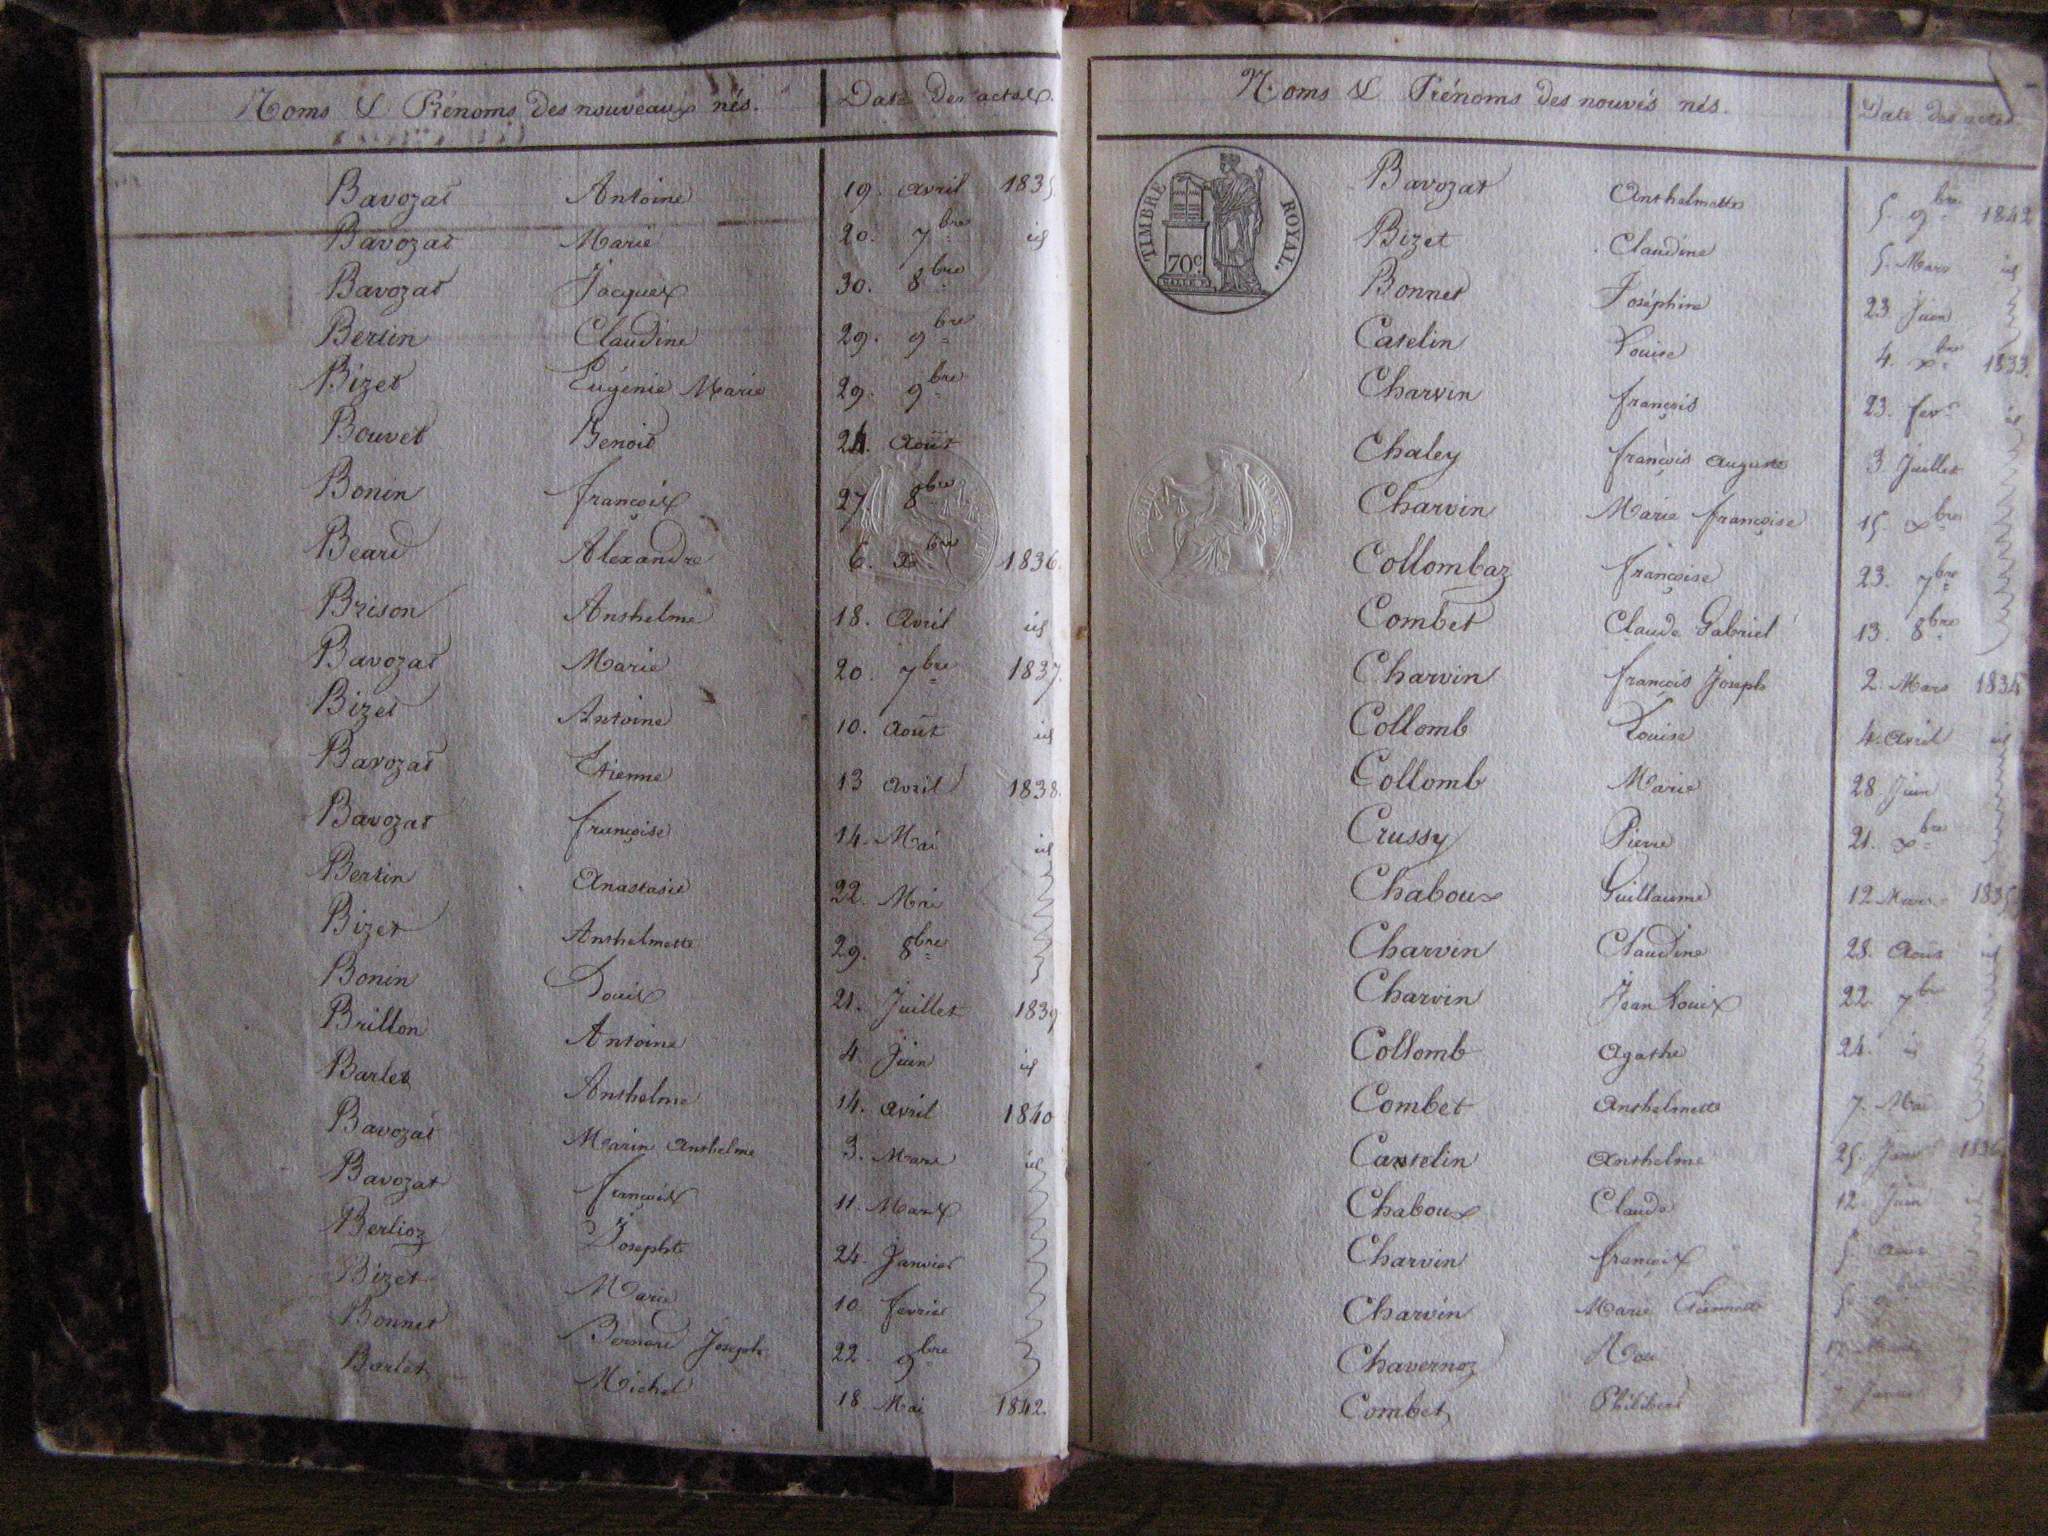 Noms & Prénoms des nouveaux nés. Date des actes.
Bavozat Antoine 19. avril 1835
Bavozat Marie 20. 7bre id
Bavozat Jacques 30. 8bre
Bertin Claudine 29. 9bre
Bizet Eugénie Marie 29. 9bre
Bouvet Benoit 24. Août
Bonin françois 27. 8bre
Beard Alexandre 6. xbre 1836.
Brison Anthelme 18. Avril id
Bavozat Marie 20. 7bre 1837.
Bizet Antoine 10. Août id
Bavozat Etienne 13 Avril 1838.
Bavozat françoise 14. Mai id
Bertin Anastasie 22. Mai
Bizet Anthelmette 29. 8bre
Bonin Louis 21. Juillet 1839
Brillon Antoine 4. Juin id
Barlet Anthelme 14. avril 1840
Bavozat Marin Anthelme 3. Mars id
Bavozat françois 11. Mars
Berlioz Josephte 24. Janvier
Bizet Marie 10. fevrier
Bonnet Bernard Joseph 22. 9bre
Barlet Michel 18 Mai 1842.
Noms & Prénoms des nouvés nés. Date des actes
TIMBRE ROYAL.
70c.
Bavozat Anthelmette 5. 9bre 1842
Bizet Claudine 5. Mars id
Bonnet Joséphine 23. Juin
Catelin Louise 4. xbre 1833.
Charvin françois 23. fevr id
Chaley françois auguste 3. Juillet
Charvin Marie françoise 15. xbre
Collombaz françoise 23. 7bre
Combet Claude Gabriel 13. 8bre
Charvin françois Joseph 2. Mars 1834
Collomb Louise 4. avril id
Collomb Marie 28 Juin
Crussy Pierre 21. xbre
Chaboux Guillaume 12 Mars 1835
Charvin Claudine 28. Août id
Charvin Jean Louis 22. 7bre
Collomb Agathe 24. id
Combet Anthelmette 7. Mai
Castelin Anthelme 25. Janv 1836
Chaboux Claude 12. Juin id
Charvin françois 5.
Charvin Marie Etiennette 9bre
Chavernoz
Combet Philibert Janvier